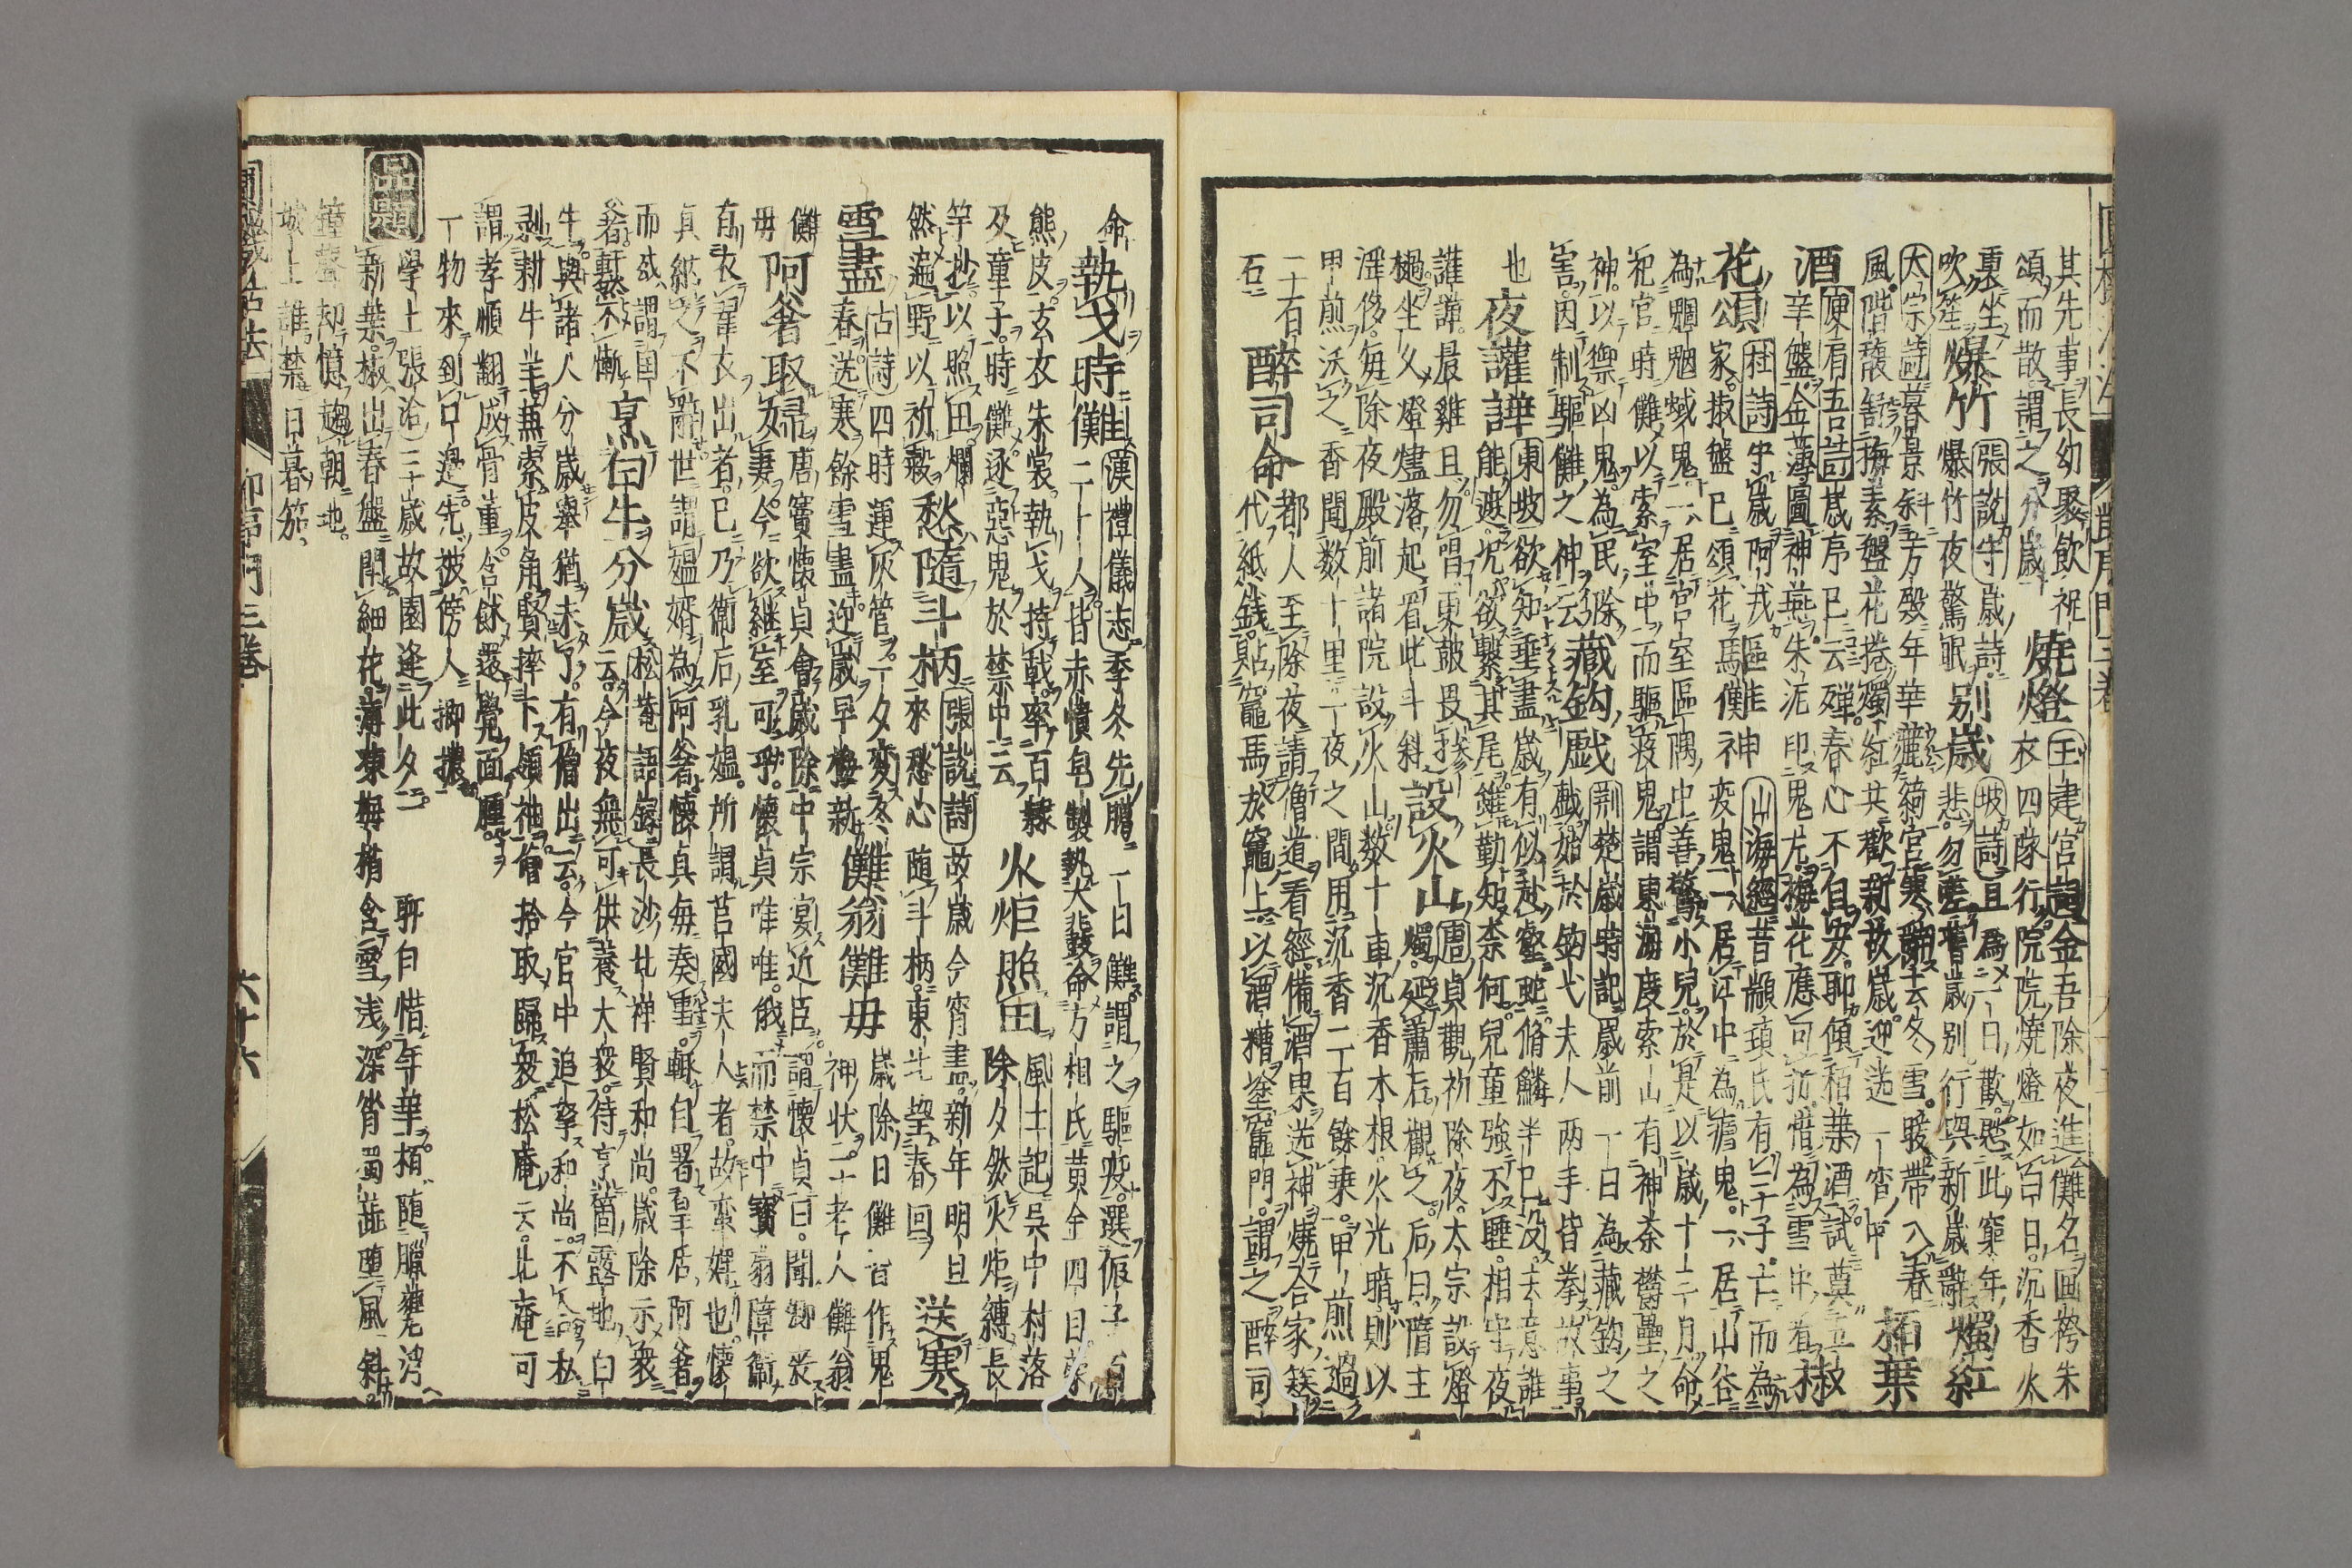 其先事長幼聚飲祝
頌而散謂之分歳 燒燈 王建宮詞金吾除夜進儺名画袴朱
衣四隊行院院燒燈如白日沉香火
裏坐吹笙 爆竹 張説守歳詩爆竹夜驚眠 別歳 坡詩且為一日歡慰此窮年悲勿嗟舊歳別行與新歳辭 燭紅
大宗詩暮景斜芳殿年華麗綺宮寒辭去冬雪暖帶入春
風階馥舒梅素盤花捲燭紅共歡新故歳迎送一宵中 栢葉
酒 庾肩吾詩歳序已云殫春心不自安聊傾栢葉酒試奠五
辛盤金薄圖神燕朱泥印鬼丸梅花應可折惜為雪中看 椒
花頌 杜詩守歳阿戎家椒盤已頌花 驅儺神 山海經昔顓頊氏有三子亡而為
変鬼一居江中為瘧鬼一居山谷
為魍魎蜮鬼一居宮室區隅中善驚小兒於是以歳十二月命
祀官時儺以索室中而驅疫鬼謂東海度索山有神荼欝壘之
神以禦凶鬼為民除
害因制驅儺之神云 藏鈎戯 荊楚歳時記歳前一日為藏鈎之
戯始於鈎弋夫人両手皆拳故事
也 夜讙譁 東坡欲知垂盡歳有似赴壑蛇脩鱗半已没去意誰
能遮况欲繋其尾雖勤知奈何兒童強不睡相守夜
讙譁最雞且勿唱更皷畏
撾坐久燈燼落起看此斗斜 設火山 唐貞觀初除夜太宗設燈
燭延蕭后觀之后曰隋主
淫侈毎除夜殿前諸院設火山数十車沉香木根火光暗則以
甲煎沃之香聞数十里一夜之間用沉香二百餘乗甲煎過
二百
石 醉司命 都人至除夜請僧道看經備酒果送神燒合家
代紙銭貼竈馬於竈上以酒糟塗竈門謂之醉司
命 執戈時儺 漢禮儀志季冬先臘一日儺謂之驅疫選侲子百
二十人皆赤幘皂製執大鼗方相氏黄金四目蒙
熊皮玄衣朱裳執戈持戟率百隷
及童子時儺逐惡鬼於禁中云 火炬照田 風土記呉中村落
除夕然火炬縛長
竿抄以照田爛
然遍野以祈穀 愁隨斗柄 張説詩故歳今宵盡新年明旦
來愁心随斗柄東北望春回 送寒
雪盡 古詩四時運灰管一夕変冬
春送寒餘雪盡迎歳早梅新 儺翁儺母 歳除日儺皆作鬼
神状二老人儺翁
儺
母 阿㸙取婦 唐竇懐貞會歳除中宗宴近臣謂懐貞曰聞卿喪
妻今欲継室可乎懐貞唯唯俄而禁中寳扇障衛
有衣翟衣出者已乃衛后乳媼所謂莒國夫人者故蛮婢也懐
貞納之不辭世謂媼婿為阿㸙懐貞毎奏事輒自署皇后阿㸙
而或謂国
㸙軒然不慚 烹白牛分歳 松菴語録長沙北禅賢和尚歳除示衆
云今夜無可供養大衆待烹箇露地白
牛與諸人分歳舉猶未了有僧出云今官中追拏和尚不合私
剥耕牛羊蒸索皮角賢捽下嶺袖僧拾取歸衆松庵云北庵可
謂孝順翻成骨董含餘還覺面腫
一物來到口邉先被傍人挪攪
品題
學士張洽三十歳故園逢此夕二 聊自惜年華栢随臘甕浮
新葉椒出春盤開細花薄凍梅梢含雪浅深宵蜀蕋堕風斜
鐘聲却憶趨朝地
城上誰禁日暮笳
圓機活法
節序門三巻
六十六